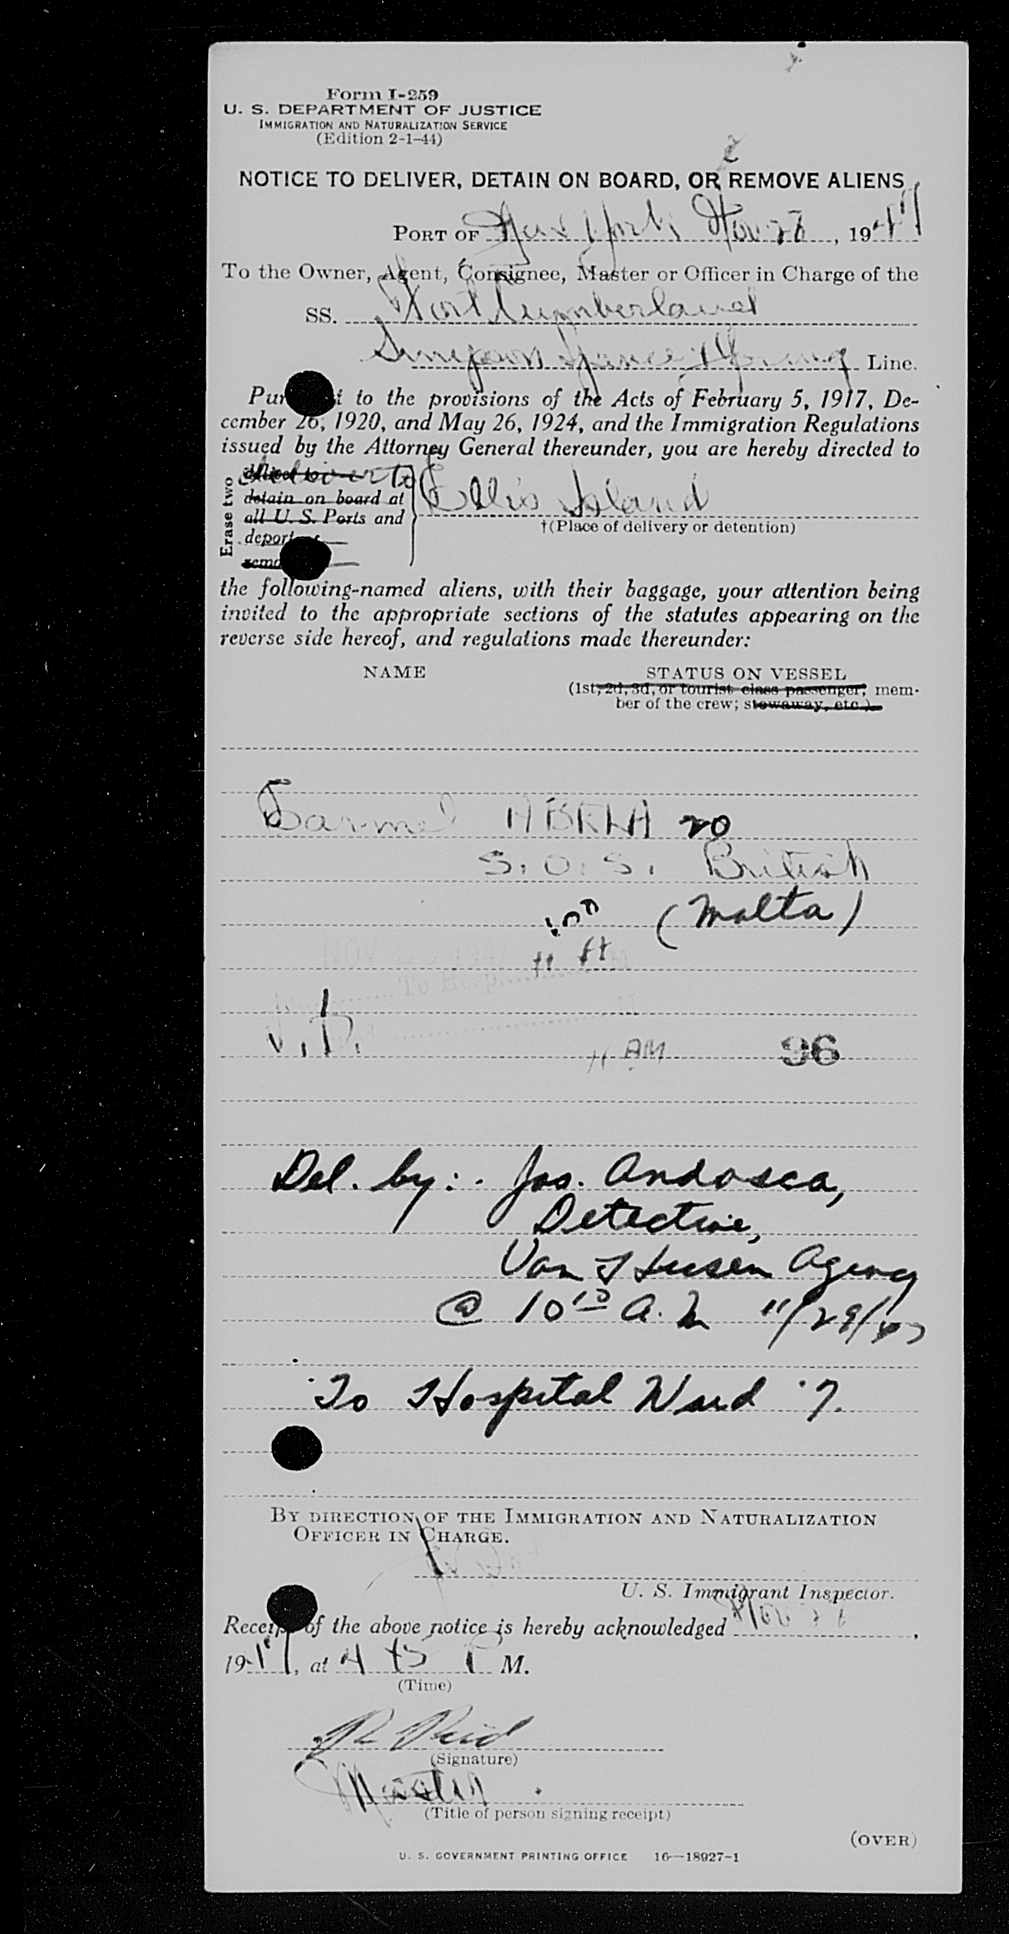 Form I-259
U. S. DEPARTMENT OF JUSTICE
IMMIGRATION AND NATURALIZATION SERVICE
(Edition 2-1-44)
NOTICE TO DELIVER, DETAIN ON BOARD, OR REMOVE ALIENS
PORT OF New York Nov 28, 1947
To the Owner, Agent, Consignee, Master or Officer in Charge of the
SS. Fort Cumberland
Simpson Spence & Young Line.
Pur t to the provisions of the Acts of February 5, 1917, De-
cember 26, 1920, and May 26, 1924, and the Immigration Regulations
issued by the Attorney General thereunder, you are hereby directed to
Erase two
deliver to
detain on board at
all U. S. Ports and
deport
Ellis Island
†(Place of delivery or detention)
the following-named aliens, with their baggage, your attention being
invited to the appropriate sections of the statutes appearing on the
reverse side hereof, and regulations made thereunder:
NAME STATUS ON VESSEL
(1st, 2d, 3d, or tourist class passenger, mem-
ber of the crew; stowaway, etc.)
Carmel ABELA 20
S.O.S. British
(Malta)
V.D.
11 AM 96
Del. by: Jos. Andosca,
Detective,
Van Husen Agency
@ 10 15 A.M 11/29/47
To Hospital Ward 7.
BY DIRECTION OF THE IMMIGRATION AND NATURALIZATION
OFFICER IN CHARGE.
U. S. Immigrant Inspector.
Receipt of the above notice is hereby acknowledged Nov 28,
1947, at 4 45 P M.
(Time)
R Reid
(Signature)
Master
(Title of person signing receipt)
(OVER)
U. S. GOVERNMENT PRINTING OFFICE 16—18927-1